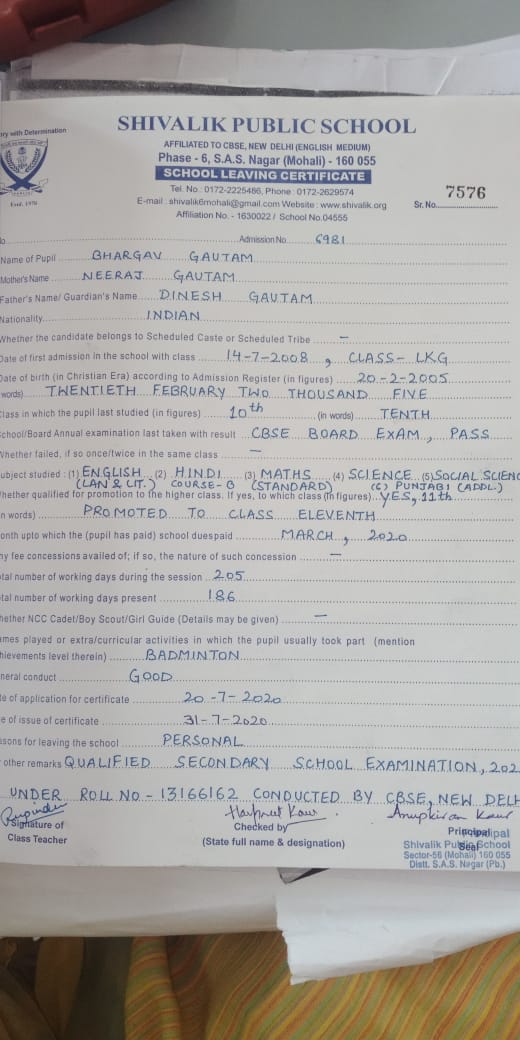 ry with Determination
SHIVALIK PUBLIC SCHOOL
AFFILIATED TO CBSE, NEW DELHI (ENGLISH MEDIUM)
Phase - 6, S.A.S. Nagar (Mohali) - 160 055
SCHOOL LEAVING CERTIFICATE
Estd. 1970
Tel. No.: 0172-2225486, Phone : 0172-2629574
E-mail : shivalik6mohali@gmail.com Website : www.shivalik.org
Affiliation No. - 1630022 / School No.04555
Sr. No. 7576
Admission No. 6981
Name of Pupil BHARGAV GAUTAM
Mother's Name NEERAJ GAUTAM
Father's Name/ Guardian's Name DINESH GAUTAM
Nationality INDIAN
Whether the candidate belongs to Scheduled Caste or Scheduled Tribe —
Date of first admission in the school with class 14-7-2008, CLASS- LKG
Date of birth (in Christian Era) according to Admission Register (in figures) 20-2-2005
words) TWENTIETH FEBRUARY TWO THOUSAND FIVE
Class in which the pupil last studied (in figures) 10th (in words) TENTH
School/Board Annual examination last taken with result CBSE BOARD EXAM, PASS
Whether failed, if so once/twice in the same class —
ubject studied : (1) ENGLISH (2) HINDI (3) MATHS (4) SCIENCE (5) SOCIAL SCIENC
(LAN & LIT.) COURSE-B (STANDARD) (6) PUNJABI (ADDL.)
Whether qualified for promotion to the higher class. If yes, to which class (in figures) YES, 11th
n words) PROMOTED TO CLASS ELEVENTH
onth upto which the (pupil has paid) school duespaid MARCH, 2020
ny fee concessions availed of; if so, the nature of such concession —
tal number of working days during the session 205
tal number of working days present 186
hether NCC Cadet/Boy Scout/Girl Guide (Details may be given) —
ames played or extra/curricular activities in which the pupil usually took part (mention
hievements level therein) BADMINTON
neral conduct GOOD
te of application for certificate 20-7-2020
e of issue of certificate 31-7-2020
asons for leaving the school PERSONAL
other remarks QUALIFIED SECONDARY SCHOOL EXAMINATION, 202
UNDER ROLL NO - 13166162 CONDUCTED BY CBSE, NEW DELH
Rupinder Harpreet Kaur Anupkiran Kaur
Signature of
Class Teacher
Checked by
(State full name & designation)
Principal
Principal
Seal
Shivalik Public School
Sector-56 (Mohali) 160 055
Distt. S.A.S. Nagar (Pb.)